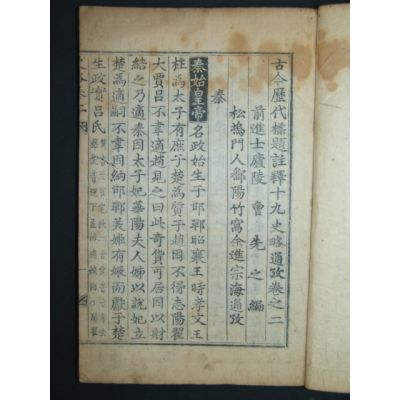 古今歷代標題註釋十九史略通攷卷之二
前進士廬陵曾先之編
松塢門人鄱陽竹窩余進宗海通攷
秦
秦始皇帝名政始生于邯鄲昭襄王時孝文王
柱爲太子有庶子楚爲質于趙困不得志陽翟
大賈呂不韋適趙見之曰此奇貨可居因以財
結之乃適秦因太子妃華陽夫人姊以說妃立
楚爲適嗣不韋因納邯鄲美姬有娠而獻于楚
生政實呂氏